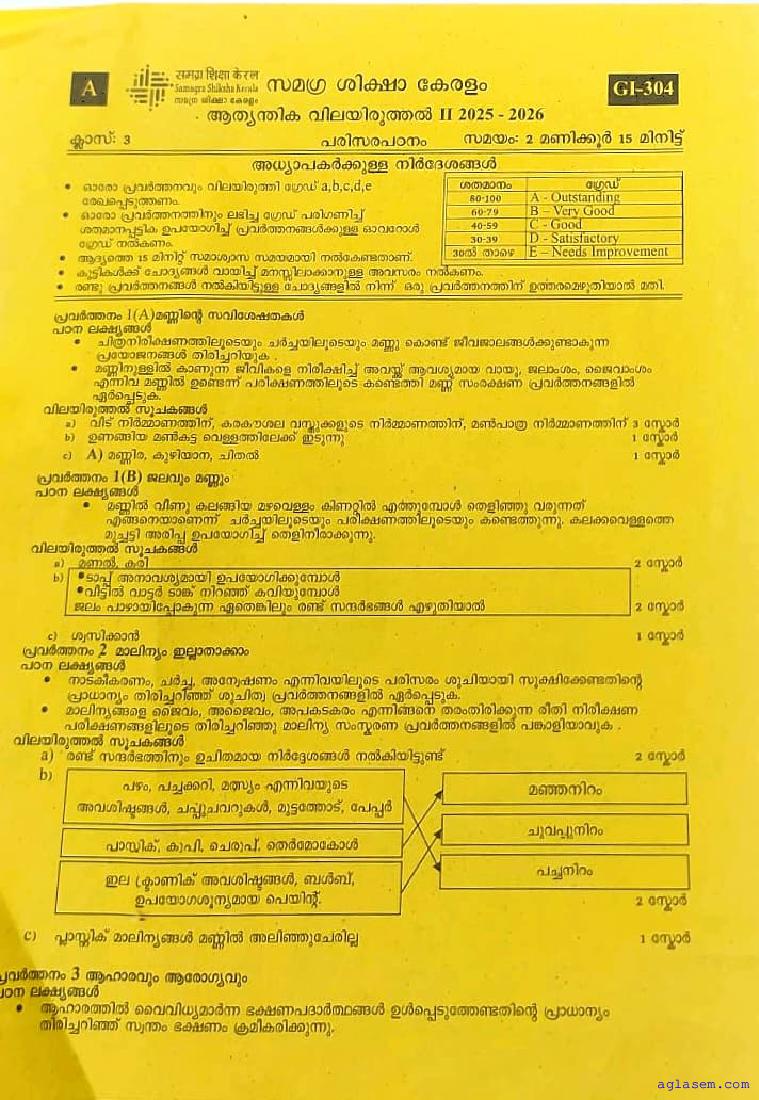 A
समग्र शिक्षा केरल
Samagra Shiksha Kerala
സമഗ്ര ശിക്ഷാ കേരളം
സമഗ്ര ശിക്ഷാ കേരളം
GI-304
ആത്യന്തിക വിലയിരുത്തൽ II 2025 - 2026
ക്ലാസ്: 3 പരിസരപഠനം സമയം: 2 മണിക്കൂർ 15 മിനിട്ട്
അധ്യാപകർക്കുള്ള നിർദേശങ്ങൾ
• ഓരോ പ്രവർത്തനവും വിലയിരുത്തി ഗ്രേഡ് a,b,c,d,e
രേഖപ്പെടുത്തണം.
• ഓരോ പ്രവർത്തനത്തിനും ലഭിച്ച ഗ്രേഡ് പരിഗണിച്ച്
ശതമാനപ്പട്ടിക ഉപയോഗിച്ച് പ്രവർത്തനങ്ങൾക്കുള്ള ഓവറോൾ
ഗ്രേഡ് നൽകണം.
• ആദ്യത്തെ 15 മിനിറ്റ് സമാശ്വാസ സമയമായി നൽകേണ്ടതാണ്.
• കുട്ടികൾക്ക് ചോദ്യങ്ങൾ വായിച്ച് മനസ്സിലാക്കാനുള്ള അവസരം നൽകണം.
• രണ്ടു പ്രവർത്തനങ്ങൾ നൽകിയിട്ടുള്ള ചോദ്യങ്ങളിൽ നിന്ന് ഒരു പ്രവർത്തനത്തിന് ഉത്തരമെഴുതിയാൽ മതി.
ശതമാനം ഗ്രേഡ്
80-100 A - Outstanding
60-79 B – Very Good
40-59 C - Good
30-39 D - Satisfactory
30ൽ താഴെ E – Needs Improvement
പ്രവർത്തനം 1(A) മണ്ണിന്റെ സവിശേഷതകൾ
പഠന ലക്ഷ്യങ്ങൾ
• ചിത്രനിരീക്ഷണത്തിലൂടെയും ചർച്ചയിലൂടെയും മണ്ണു കൊണ്ട് ജീവജാലങ്ങൾക്കുണ്ടാകുന്ന
പ്രയോജനങ്ങൾ തിരിച്ചറിയുക .
• മണ്ണിനുള്ളിൽ കാണുന്ന ജീവികളെ നിരീക്ഷിച്ച് അവയ്ക്ക് ആവശ്യമായ വായു, ജലാംശം, ജൈവാംശം
എന്നിവ മണ്ണിൽ ഉണ്ടെന്ന് പരീക്ഷണത്തിലൂടെ കണ്ടെത്തി മണ്ണ് സംരക്ഷണ പ്രവർത്തനങ്ങളിൽ
ഏർപ്പെടുക.
വിലയിരുത്തൽ സൂചകങ്ങൾ
a) വീട് നിർമ്മാണത്തിന്, കരകൗശല വസ്തുക്കളുടെ നിർമ്മാണത്തിന്, മൺപാത്ര നിർമ്മാണത്തിന് 3 സ്കോർ
b) ഉണങ്ങിയ മൺകട്ട വെള്ളത്തിലേക്ക് ഇടുന്നു 1 സ്കോർ
c) A) മണ്ണിര, കുഴിയാന, ചിതൽ 1 സ്കോർ
പ്രവർത്തനം 1(B) ജലവും മണ്ണും
പഠന ലക്ഷ്യങ്ങൾ
• മണ്ണിൽ വീണു കലങ്ങിയ മഴവെള്ളം കിണറ്റിൽ എത്തുമ്പോൾ തെളിഞ്ഞു വരുന്നത്
എങ്ങനെയാണെന്ന് ചർച്ചയിലൂടെയും പരീക്ഷണത്തിലൂടെയും കണ്ടെത്തുന്നു. കലക്കവെള്ളത്തെ
മൂച്ചട്ടി അരിപ്പ ഉപയോഗിച്ച് തെളിനീരാക്കുന്നു.
വിലയിരുത്തൽ സൂചകങ്ങൾ
a) മണൽ, കരി 2 സ്കോർ
b) •ടാപ്പ് അനാവശ്യമായി ഉപയോഗിക്കുമ്പോൾ
•വീട്ടിൽ വാട്ടർ ടാങ്ക് നിറഞ്ഞ് കവിയുമ്പോൾ
ജലം പാഴായിപ്പോകുന്ന ഏതെങ്കിലും രണ്ട് സന്ദർഭങ്ങൾ എഴുതിയാൽ 2 സ്കോർ
c) ശ്വസിക്കാൻ 1 സ്കോർ
പ്രവർത്തനം 2 മാലിന്യം ഇല്ലാതാക്കാം
പഠന ലക്ഷ്യങ്ങൾ
• നാടകീകരണം, ചർച്ച, അന്വേഷണം എന്നിവയിലൂടെ പരിസരം ശുചിയായി സൂക്ഷിക്കേണ്ടതിന്റെ
പ്രാധാന്യം തിരിച്ചറിഞ്ഞ് ശുചിത്വ പ്രവർത്തനങ്ങളിൽ ഏർപ്പെടുക.
• മാലിന്യങ്ങളെ ജൈവം, അജൈവം, അപകടകരം എന്നിങ്ങനെ തരംതിരിക്കുന്ന രീതി നിരീക്ഷണ
പരീക്ഷണങ്ങളിലൂടെ തിരിച്ചറിഞ്ഞു മാലിന്യ സംസ്കരണ പ്രവർത്തനങ്ങളിൽ പങ്കാളിയാവുക .
വിലയിരുത്തൽ സൂചകങ്ങൾ
a) രണ്ട് സന്ദർഭത്തിനും ഉചിതമായ നിർദ്ദേശങ്ങൾ നൽകിയിട്ടുണ്ട് 2 സ്കോർ
b) പഴം, പച്ചക്കറി, മത്സ്യം എന്നിവയുടെ
അവശിഷ്ടങ്ങൾ, ചപ്പുചവറുകൾ, മുട്ടത്തോട്, പേപ്പർ
മഞ്ഞനിറം
പ്ലാസ്റ്റിക്, കുപ്പി, ചെരുപ്പ്, തെർമോകോൾ
ചുവപ്പുനിറം
ഇല ക്ട്രോണിക് അവശിഷ്ടങ്ങൾ, ബൾബ്,
ഉപയോഗശൂന്യമായ പെയിന്റ്.
പച്ചനിറം
2 സ്കോർ
c) പ്ലാസ്റ്റിക് മാലിന്യങ്ങൾ മണ്ണിൽ അലിഞ്ഞുചേരില്ല 1 സ്കോർ
പ്രവർത്തനം 3 ആഹാരവും ആരോഗ്യവും
പഠന ലക്ഷ്യങ്ങൾ
• ആഹാരത്തിൽ വൈവിധ്യമാർന്ന ഭക്ഷണപദാർത്ഥങ്ങൾ ഉൾപ്പെടുത്തേണ്ടതിന്റെ പ്രാധാന്യം
തിരിച്ചറിഞ്ഞ് സ്വന്തം ഭക്ഷണം ക്രമീകരിക്കുന്നു.
aglasem.com